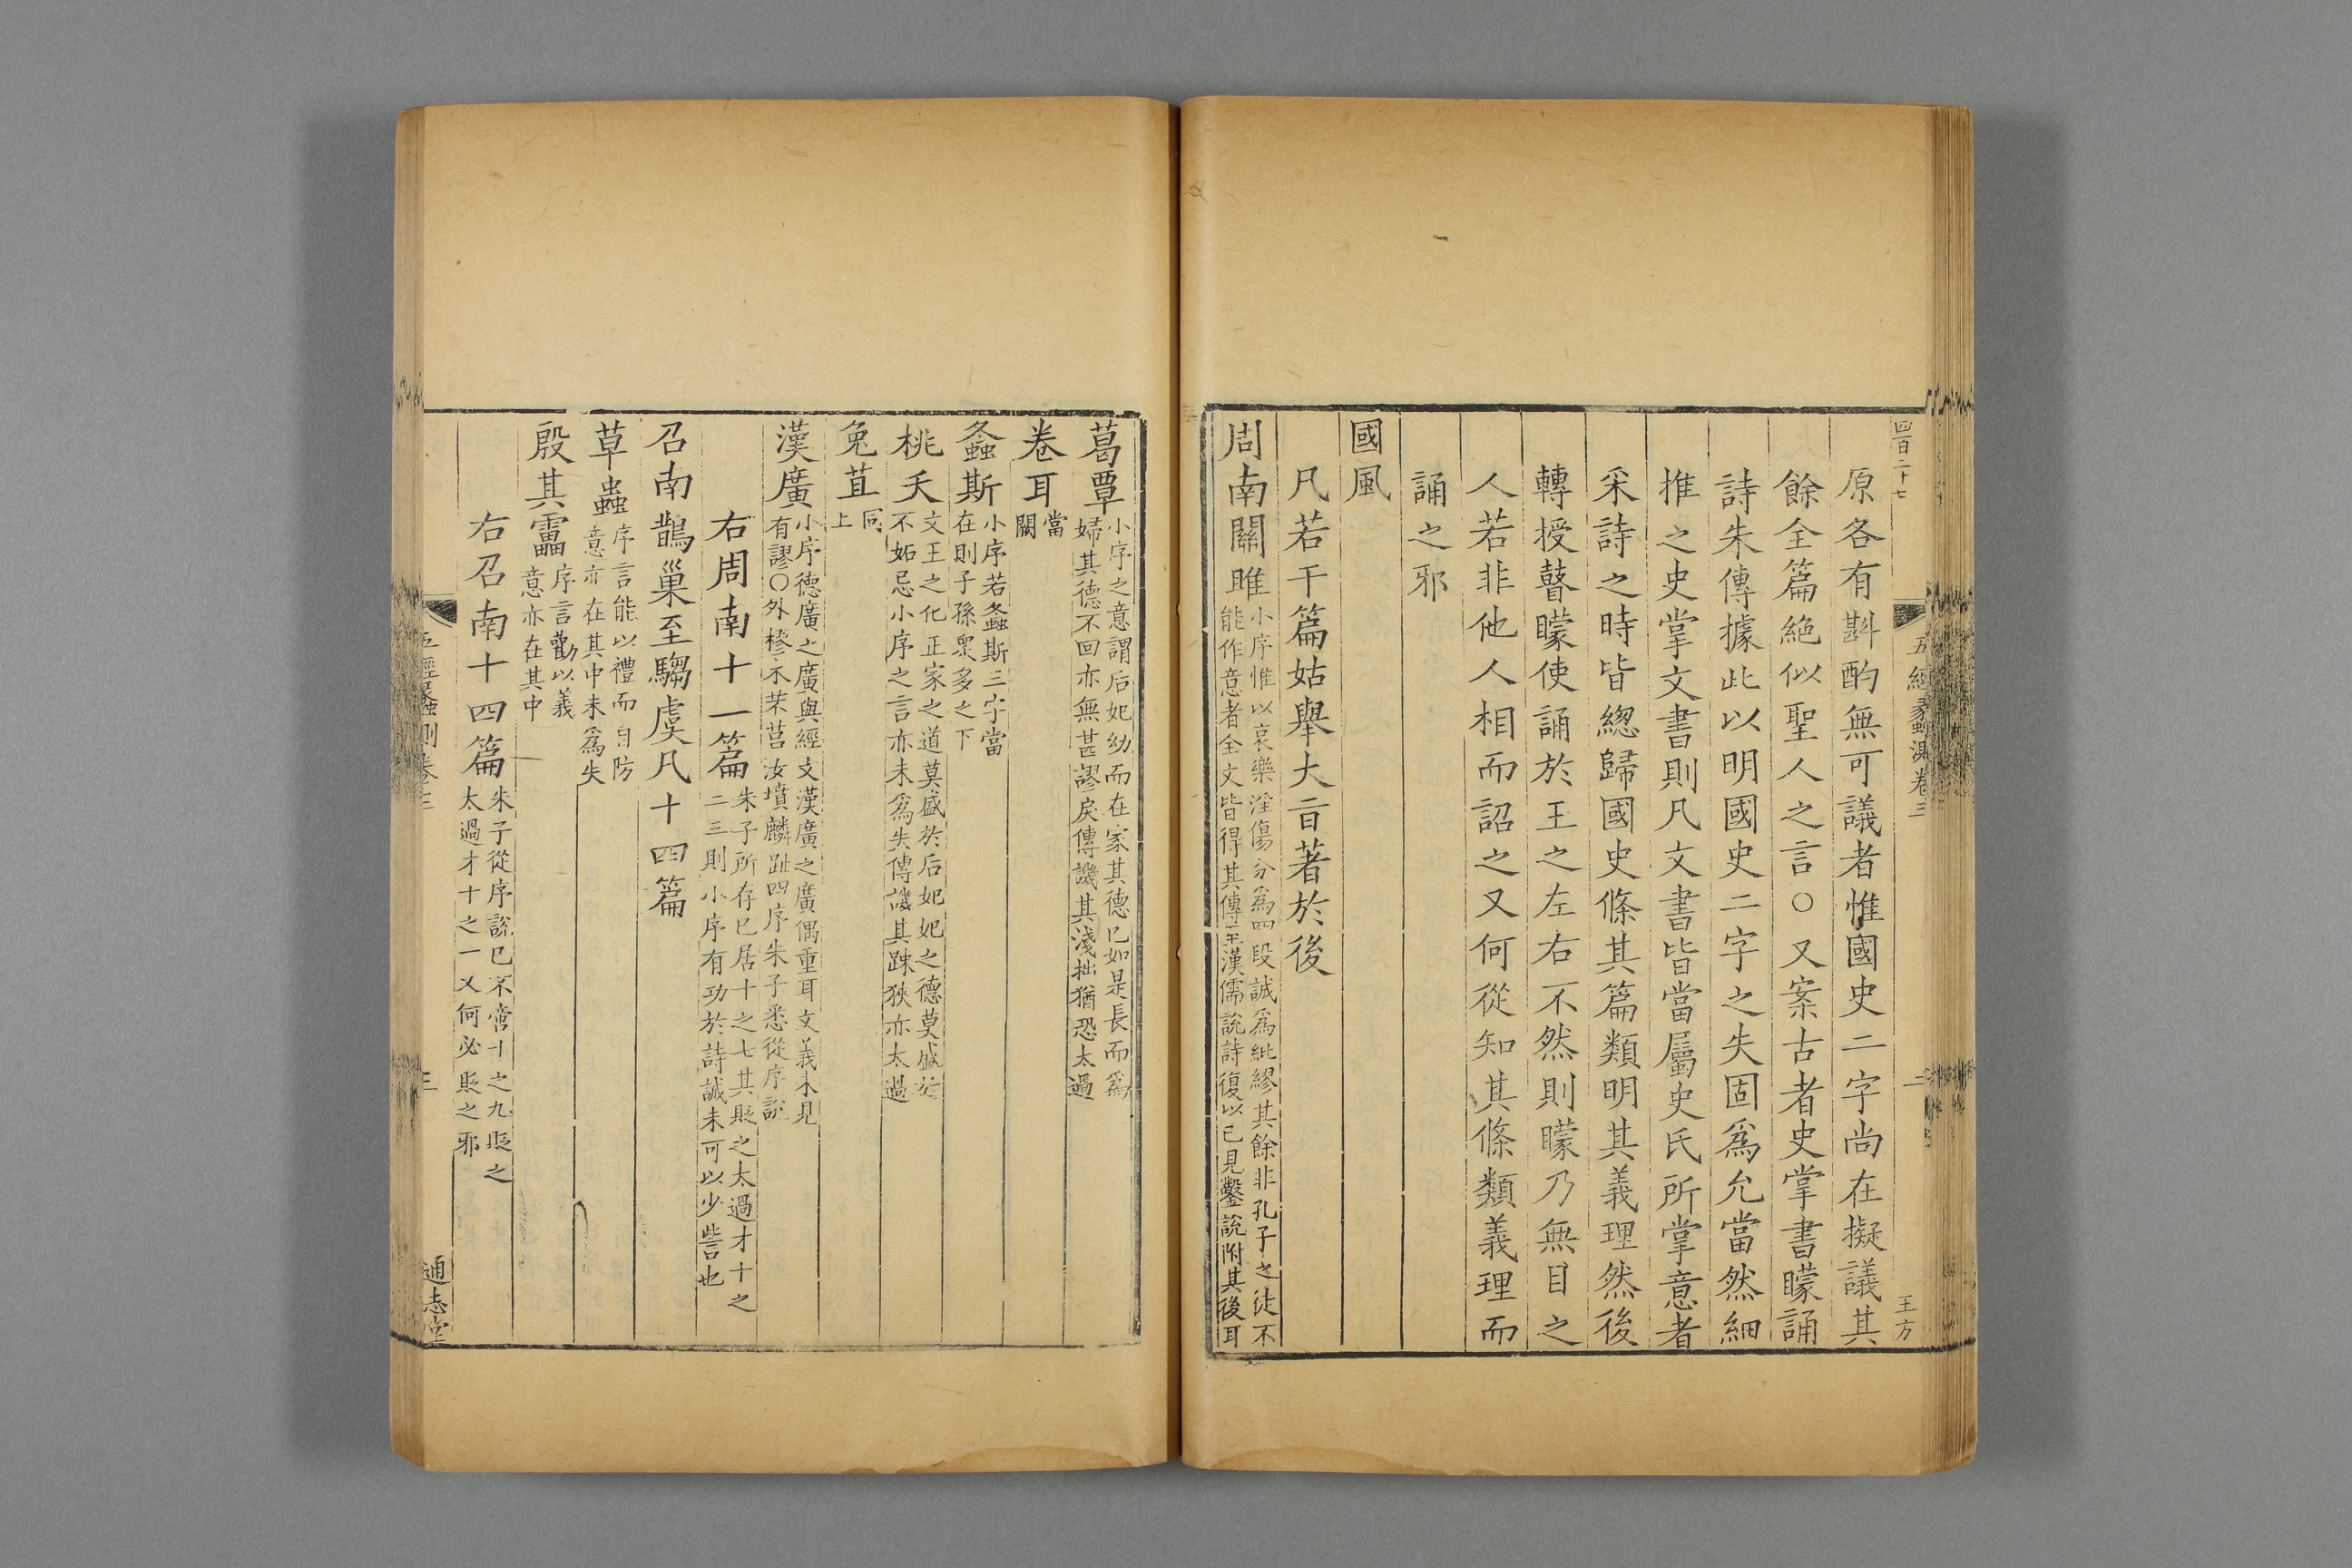 四百二十七
五經蠡測卷三
二
王方
原各有斟酌無可議者惟國史二字尚在擬議其
餘全篇絶似聖人之言○又案古者史掌書矇誦
詩朱傳據此以明國史二字之失固爲允當然細
推之史掌文書則凡文書皆當屬史氏所掌意者
采詩之時皆緫歸國史條其篇類明其義理然後
轉授瞽矇使誦於王之左右不然則矇乃無目之
人若非他人相而詔之又何從知其條類義理而
誦之邪
國風
凡若干篇姑舉大㫖著於後
周南關雎
小序惟以哀樂淫傷分爲四段誠爲紕繆其餘非孔子之徒不
能作意者全文皆得其傳至漢儒說詩復以已見鑿說附其後耳
葛覃
小序之意謂后妃幼而在家其德已如是長而爲
婦其德不回亦無甚謬戾傳譏其淺拙猶恐太過
卷耳
當
闕
螽斯
小序若螽斯三字當
在則子孫衆多之下
桃夭
文王之化正家之道莫盛於后妃妃之德莫盛於
不妬忌小序之言亦未爲失傳譏其踈狹亦太過
兔苴
同
上
漢廣
小序德廣之廣與經文漢廣之廣偶重耳文義未見
有謬○外樛木芣苢汝墳麟趾四序朱子悉從序說
右周南十一篇
朱子所存已居十之七其貶之太過才十之
二三則小序有功於詩誠未可以少訾也
召南鵲巢至騶虞凡十四篇
草蟲
序言能以禮而自防
意亦在其中未爲失
殷其靁
序言勸以義
意亦在其中
右召南十四篇
朱子從序說已不啻十之九貶之
太過才十之一又何必貶之邪
五經蠡測卷三
三
通志堂